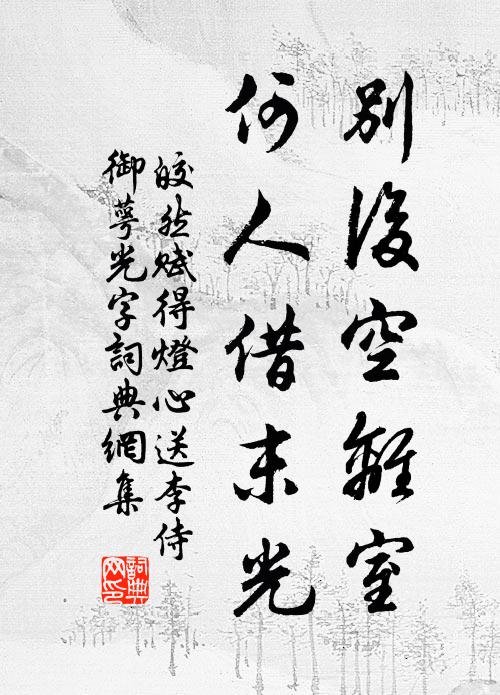 別後空離室
何人借末光
皎然賦得燈心送李侍
御萼光字詞典網集
詞典
网印